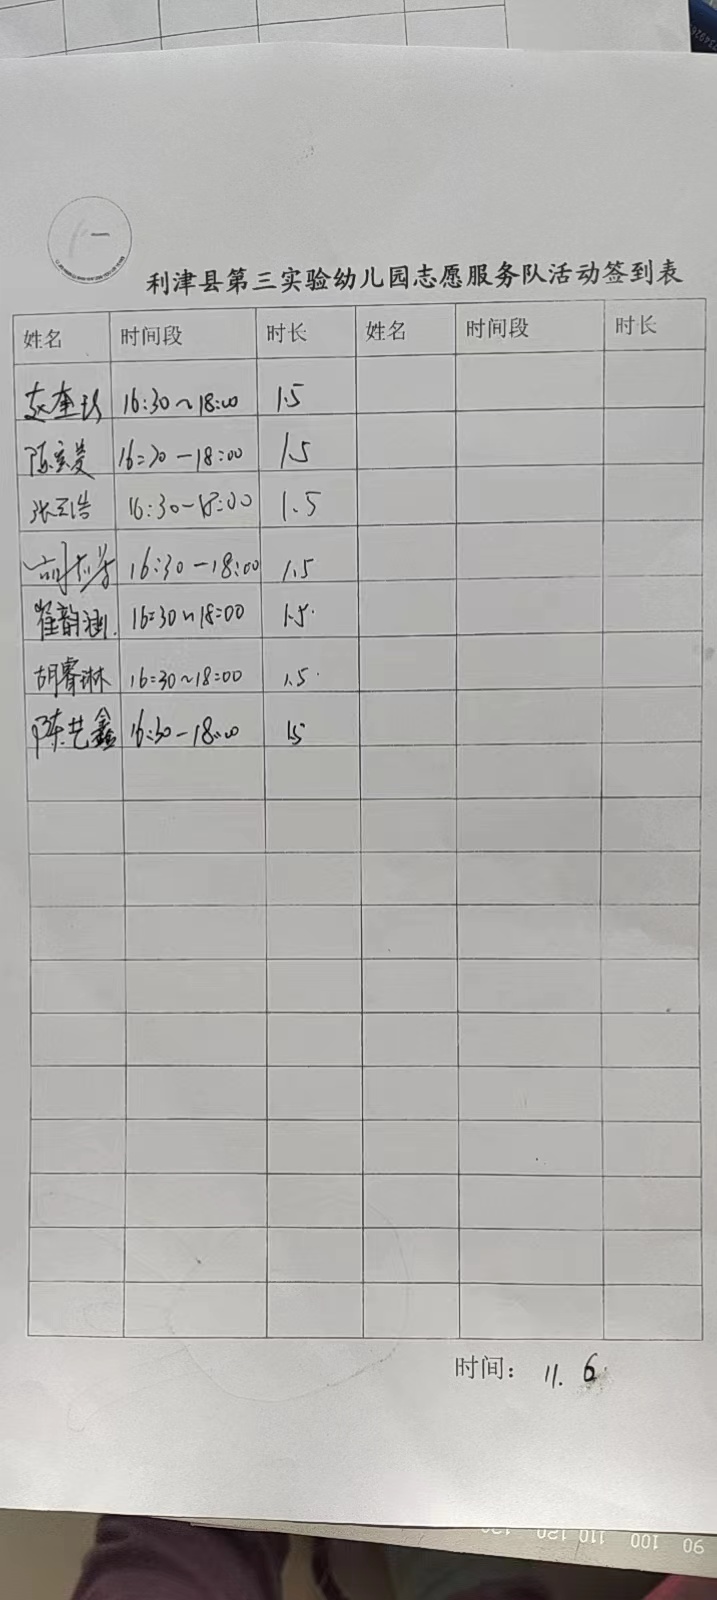 利津县第三实验幼儿园志愿服务队活动签到表
姓名 时间段 时长 姓名 时间段 时长
赵奎 16:30~18:00 1.5
陈 16:30-18:00 1.5
张云浩 16:30-18:00 1.5
16:30-18:00 1.5
崔韵涵. 16:30~18:00 1.5.
胡睿琳 16:30~18:00 1.5.
陈艺鑫 16:30-18:00 15
时间: 11. 6
90 100 110 120